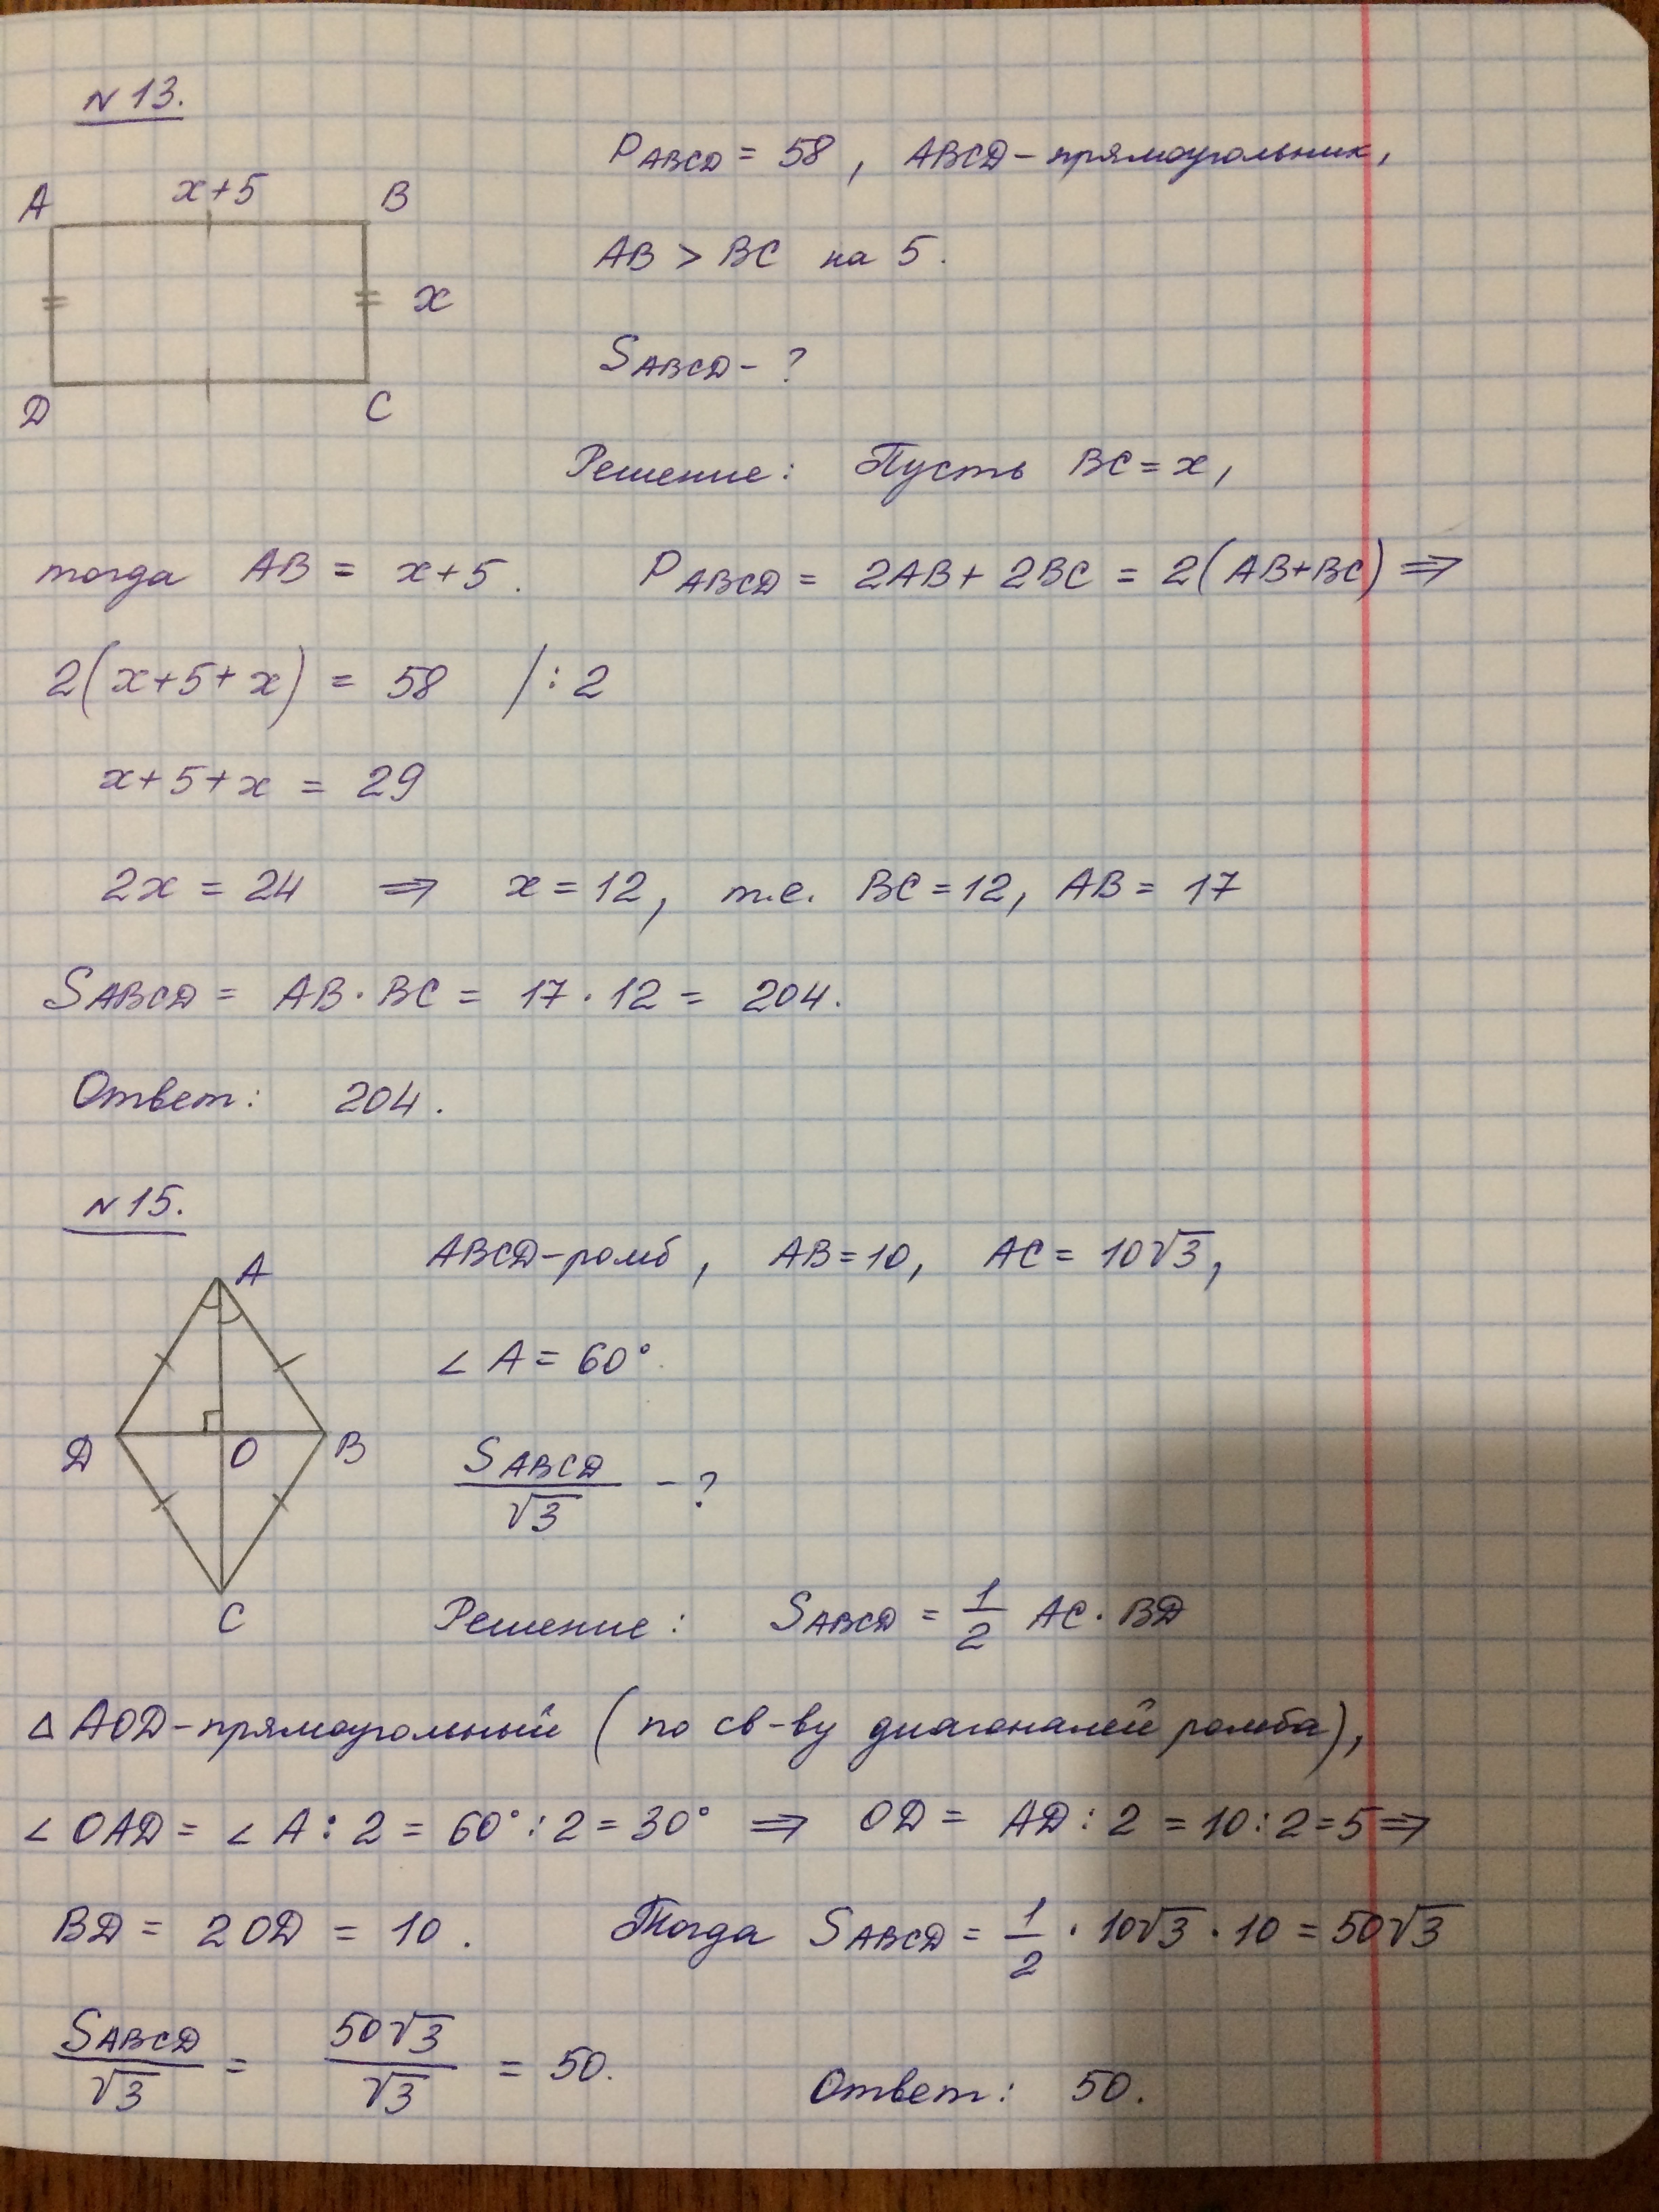 № 13.
A x+5 B
x
D C
P ABCD = 58, ABCD – прямоугольник,
AB > BC на 5.
S ABCD – ?
Решение: Пусть BC = x,
тогда AB = x+5. P ABCD = 2AB + 2BC = 2(AB+BC) ⇒
2(x+5+x) = 58 /:2
x+5+x = 29
2x = 24 ⇒ x = 12, т.е. BC = 12, AB = 17
S ABCD = AB · BC = 17 · 12 = 204.
Ответ: 204.
№ 15.
A
D O B
C
ABCD – ромб, AB = 10, AC = 10√3,
∠A = 60°.
S ABCD / √3 – ?
Решение: S ABCD = 1/2 AC · BD
△AOD – прямоугольный (по св-ву диагоналей ромба),
∠OAD = ∠A : 2 = 60° : 2 = 30° ⇒ OD = AD : 2 = 10 : 2 = 5 ⇒
BD = 2OD = 10. Тогда S ABCD = 1/2 · 10√3 · 10 = 50√3
S ABCD / √3 = 50√3 / √3 = 50. Ответ: 50.